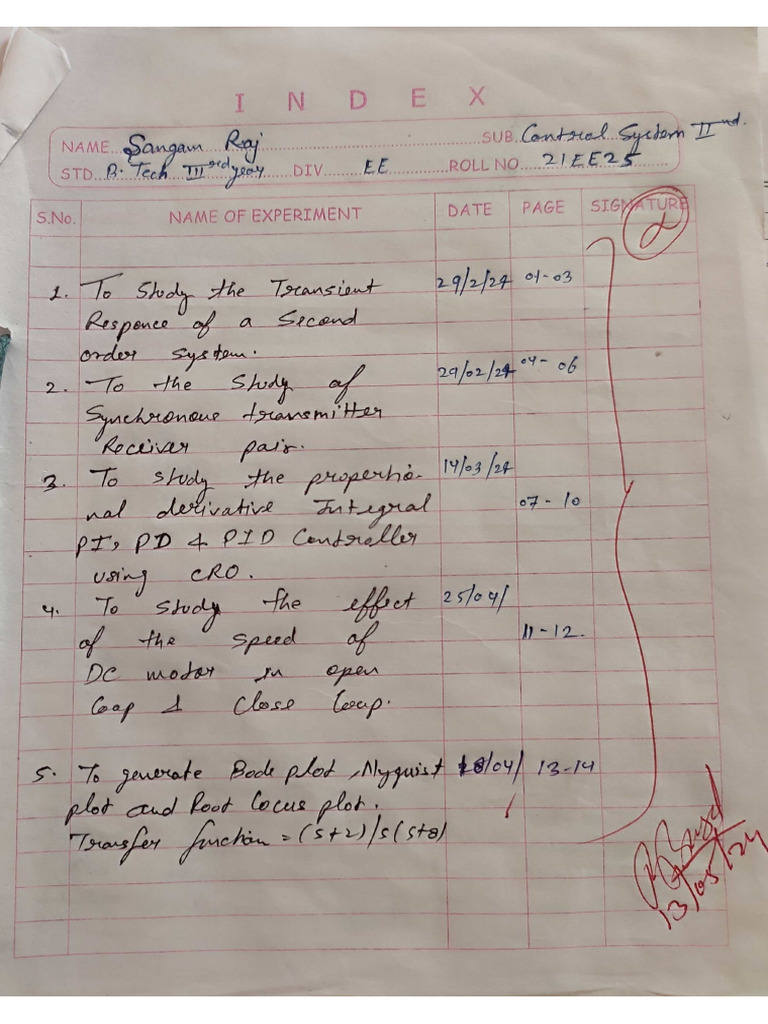 INDEX
NAME Sangam Raj SUB. Control System IInd.
STD. B. Tech IIIrd year DIV. EE ROLL NO. 21EE25
S.No. NAME OF EXPERIMENT DATE PAGE SIGNATURE
1. To Study the Transient 29/2/24 01-03
Responce of a Second
order system.
2. To the Study of 29/02/24 04-06
Synchronous transmitter
Receiver pair.
3. To study the propertio- 14/03/24
nal derivative Integral 07-10
PI, PD & PID Controller
using CRO.
4. To study the effect 25/04/
of the speed of 11-12.
DC motor in open
Loop & Close Loop.
5. To generate Bode plot, Nyquist 18/04/ 13-14
plot and Root Locus plot.
Transfer function = (s+2)/s(s+8)
13/05/24